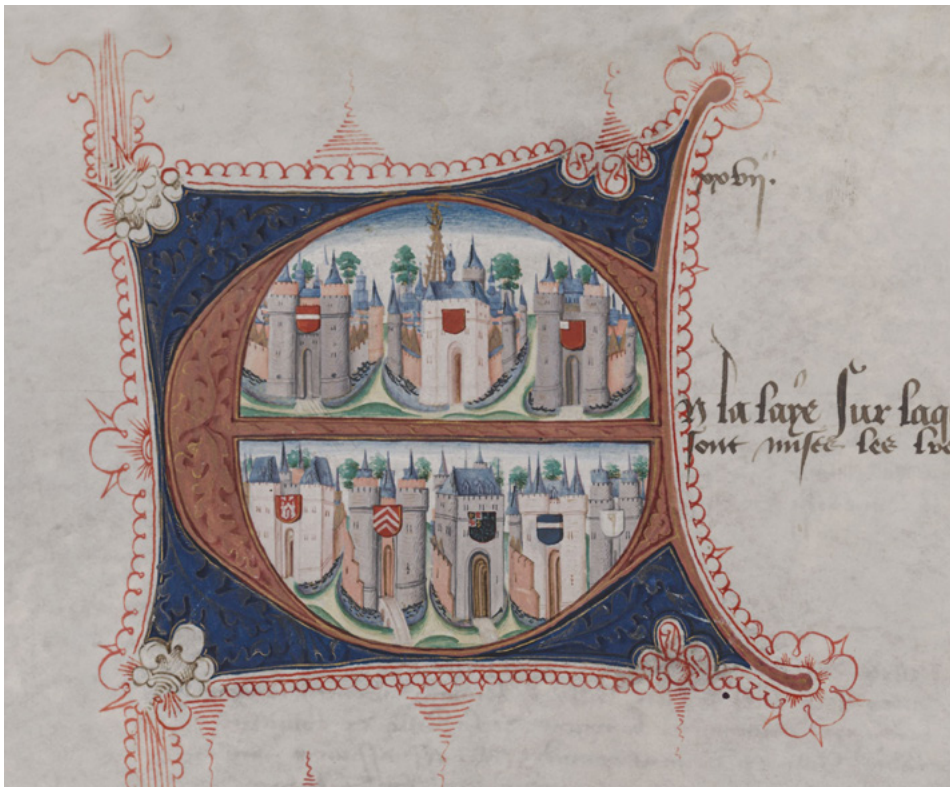 xxvij.
En la laye Sur laq
sont mises les